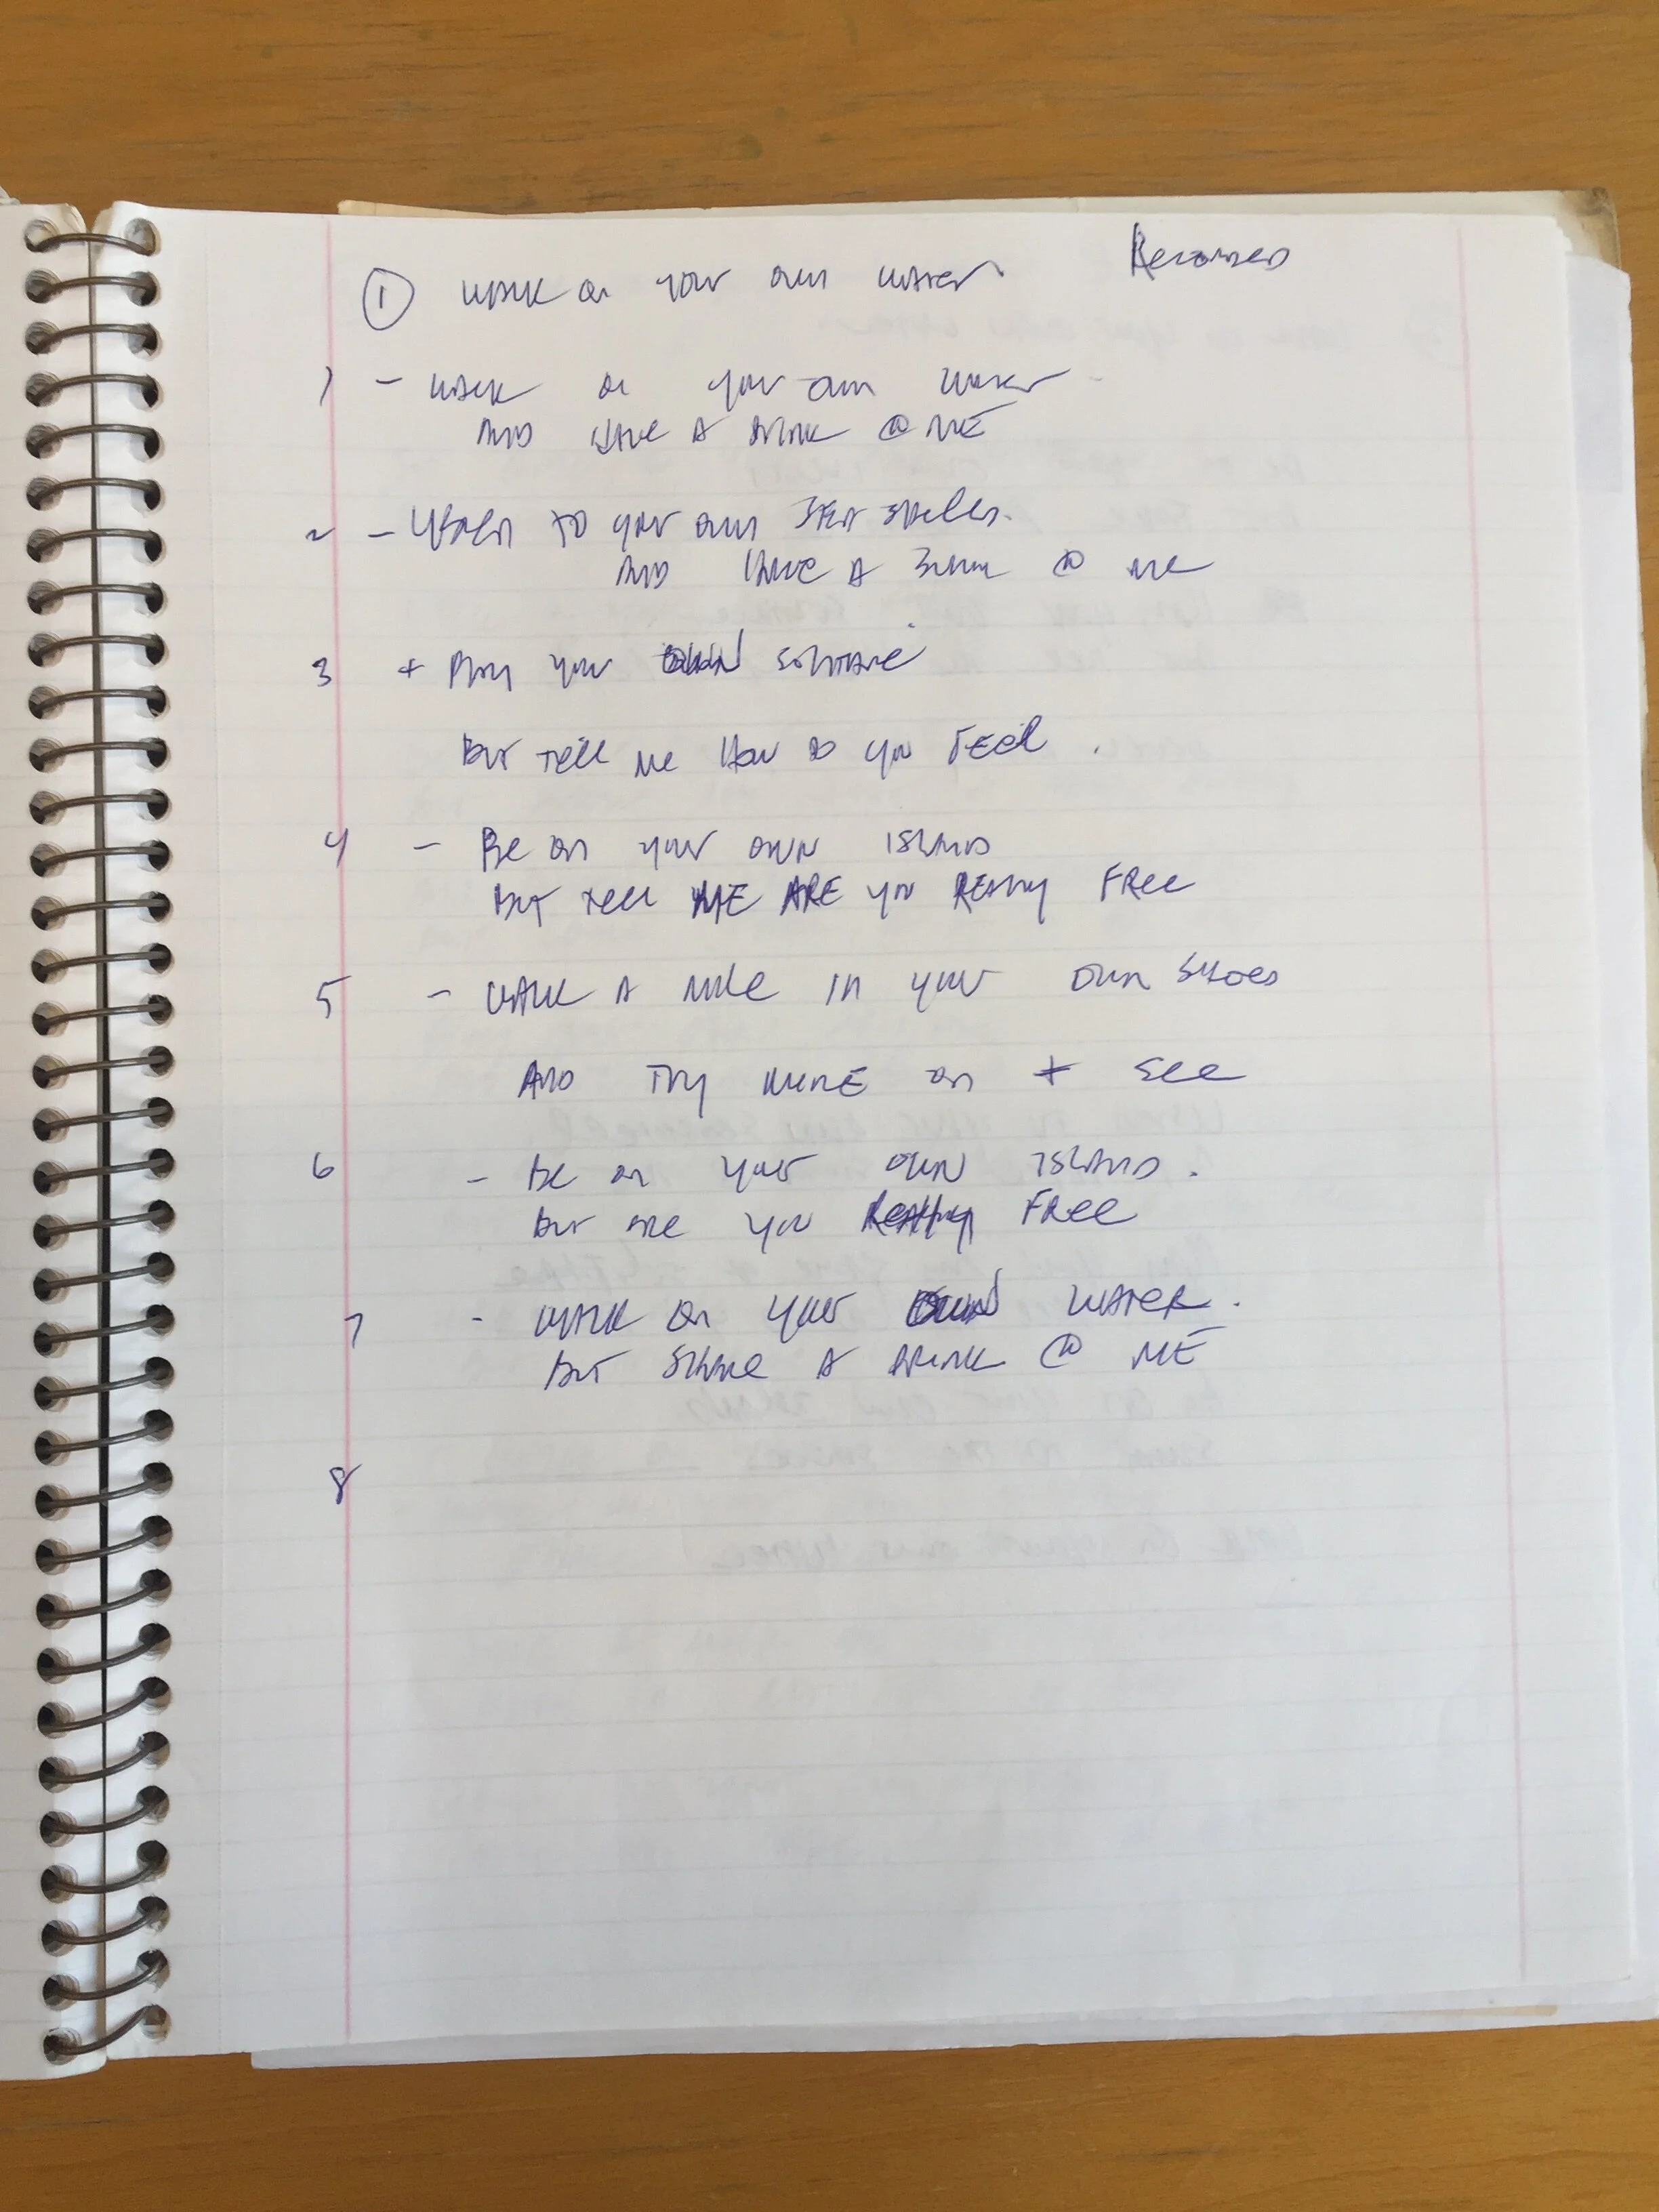 ① WALK on your own WATER Recorded
1 - WALK on your own WATER -
AND HAVE A DRINK @ ME
2 - LISTEN TO your own
AND HAVE A @ me
3 + Play your OWN SOLITAIRE
But Tell me How do you Feel .
4 - Be on your own ISLAND
But tell ME ARE you REALLY FRee
5 - WALK A mile in your own SHOES
AND Try MINE on + See
6 - Be on your OWN ISLAND .
But are you Really FRee
7 - WALK on your OWN WATER .
But SHARE A DRINK @ ME
8